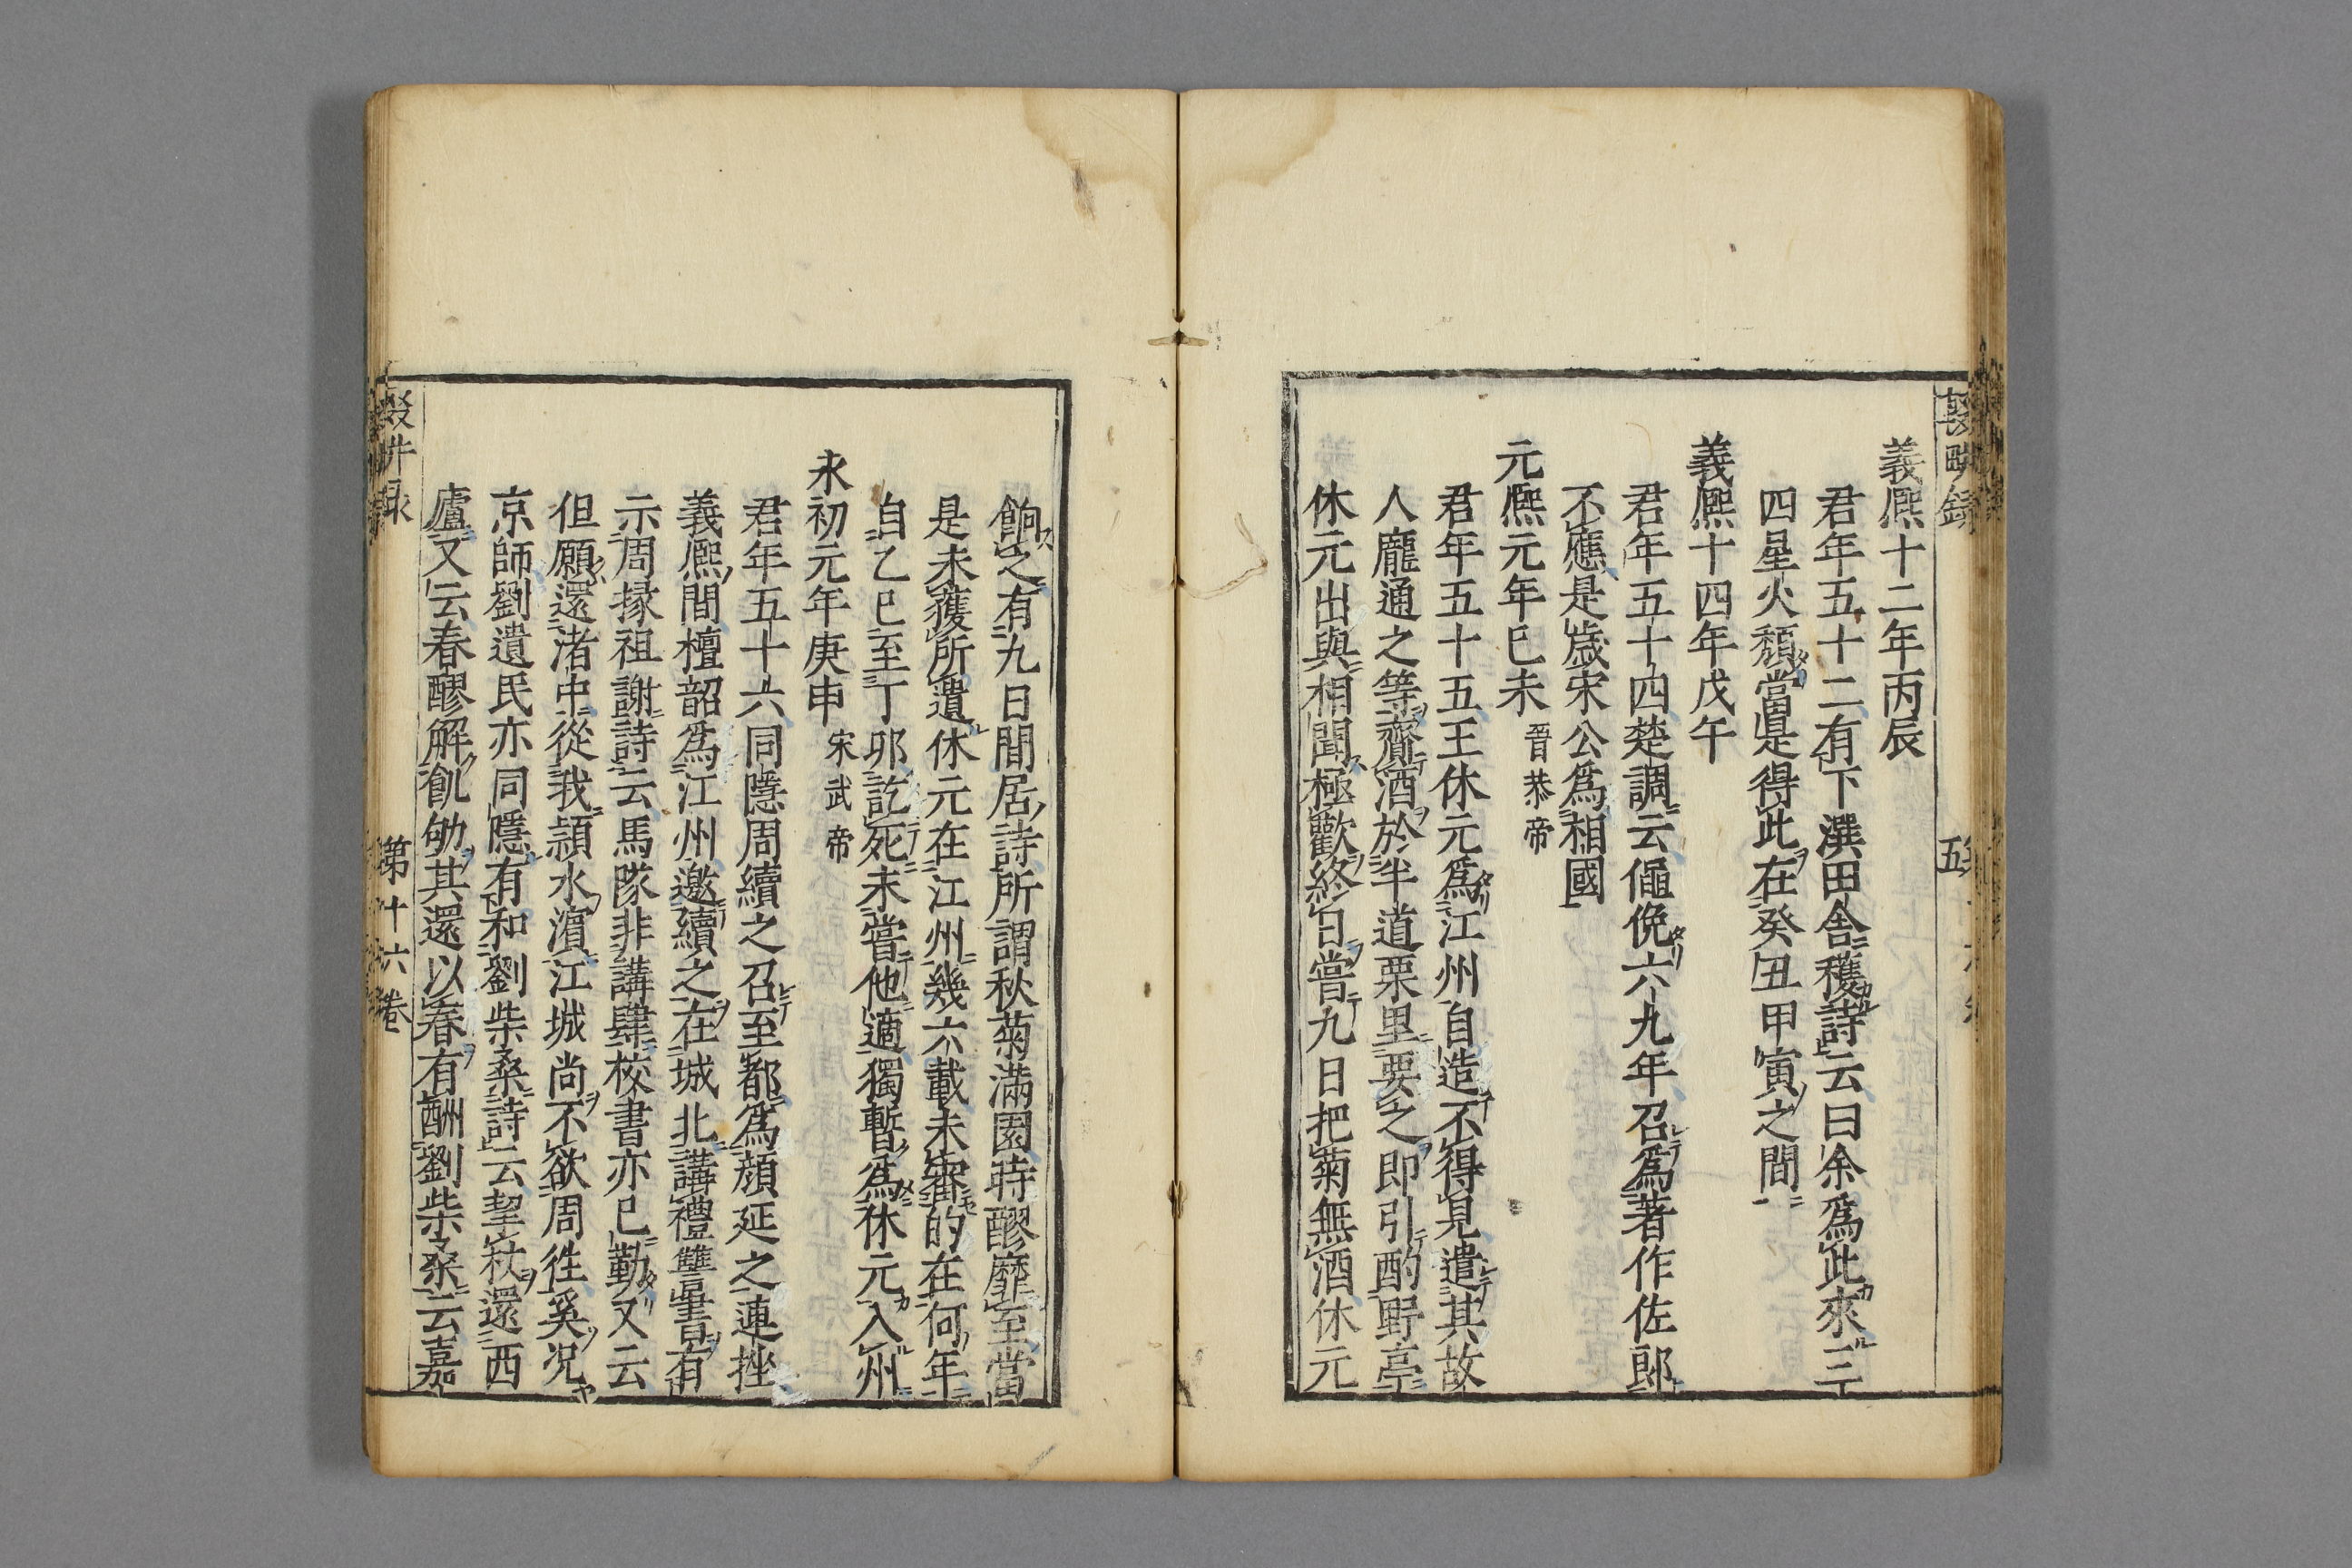 義熈十二年丙辰
君年五十二有下潠田舍穫詩云曰余爲此來三
四星火頽當是得此在癸丑甲寅之間
義熈十四年戊午
君年五十四楚調云僶俛六九年召爲著作佐郎
不應是歳宋公爲相國
元熈元年已未 晉恭帝
君年五十五王休元爲江州自造不得見遣其故
人龐通之等齎酒於半道栗里要之即引酌野亭
休元出與相聞極歡終日嘗九日把菊無酒休元
餉之有九日閒居詩所謂秋菊滿園時醪靡至當
是未獲所遺休元在江州幾六載未審的在何年
自乙已至丁夘訖死未嘗他適獨暫爲休元入州
永初元年庚申 宋武帝
君年五十六同隱周續之召至都爲顔延之連挫
義熈間檀韶爲江州邀續之在城北講禮讐書有
示周掾祖謝詩云馬隊非講肆校書亦已勤又云
但願還渚中從我潁水濵江城尚不欲周徃奚况
京師劉遺民亦同隱有和劉柴桑詩云挈杖還西
廬又云春醪解飢劬其還以春有酬劉柴桑云嘉
第十六卷